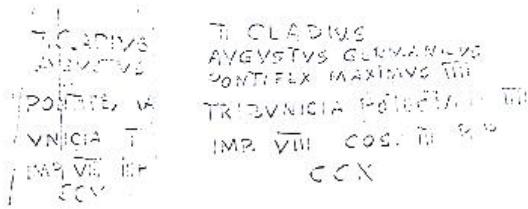 TI CLADIVS
AVGVSTVS
PONTIFE
VNICIA T
IMP VIII
CCX
TI CLADIVS
AVGVSTVS GERMANICVS
PONTIFEX MAXIMVS IIII
TRIBVNICIA
IMP. VIII COS. III P P
CCX